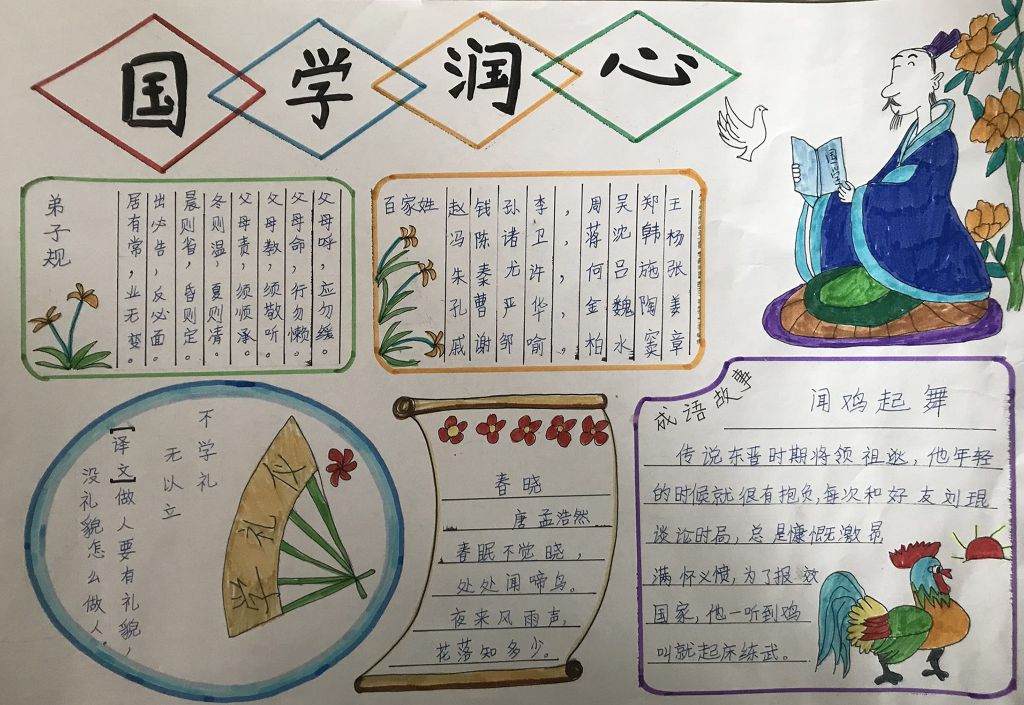 国学润心
国学
弟子规
父母呼，应勿缓。
父母命，行勿懒。
父母教，须敬听。
父母责，须顺承。
冬则温，夏则清。
晨则省，昏则定。
出必告，反必面。
居有常，业无变。
百家姓
赵钱孙李，周吴郑王
冯陈诸卫，蒋沈韩杨
朱秦尤许，何吕施张
孔曹严华，金魏陶姜
戚谢邹喻，柏水窦章
不学礼
无以立
【译文】做人要有礼貌，
没礼貌怎么做人。
学礼仪
春晓
唐 孟浩然
春眠不觉晓，
处处闻啼鸟。
夜来风雨声，
花落知多少。
成语故事
闻鸡起舞
传说东晋时期将领祖逖，他年轻
的时候就很有抱负，每次和好友刘琨
谈论时局，总是慷慨激昂
满怀义愤，为了报效
国家，他一听到鸡
叫就起床练武。